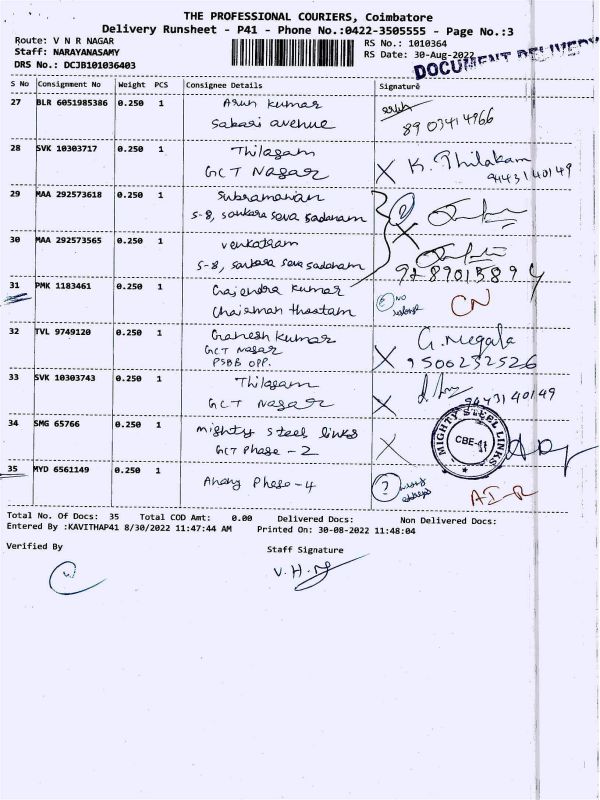 THE PROFESSIONAL COURIERS, Coimbatore
Delivery Runsheet - P41 - Phone No.:0422-3505555 - Page No.:3
Route: V N R NAGAR
RS No.: 1010364
Staff: NARAYANASAMY
RS Date: 30-Aug-2022
DRS No.: DCJB101036403
DOCUMENT DELIVERY
S No Consignment No Weight PCS Consignee Details Signature
27 BLR 6051985386 0.250 1 Arun Kumar
Sabari avenue
8903414966
28 SVK 10303717 0.250 1 Thilagam
GCT Nagar
X K. Thilakam
9443140149
29 MAA 292573618 0.250 1 Subramanian
S-8, Sankara Seva Sadanam
30 MAA 292573565 0.250 1 Venkatram
S-8, Sankara Seva Sadanam
X
9289015894
31 PMK 1183461 0.250 1 Gajendra Kumar
Chairman thottam
NO
CN
32 TVL 9749120 0.250 1 Ganesh Kumar
GCT Nagar
PSBB OPP.
X G. Megala
9500232526
33 SVK 10303743 0.250 1 Thilagam
GCT Nagar
X
9443140149
34 SMG 65766 0.250 1 Mighty Steel links
GCT Phase - 2
X
MIGHTY STEEL LINKS
CBE-
35 MYD 6561149 0.250 1
Phase - 4
? wrong address
AIR
Total No. Of Docs: 35 Total COD Amt: 0.00 Delivered Docs: Non Delivered Docs:
Entered By :KAVITHAP41 8/30/2022 11:47:44 AM Printed On: 30-08-2022 11:48:04
Verified By
Staff Signature